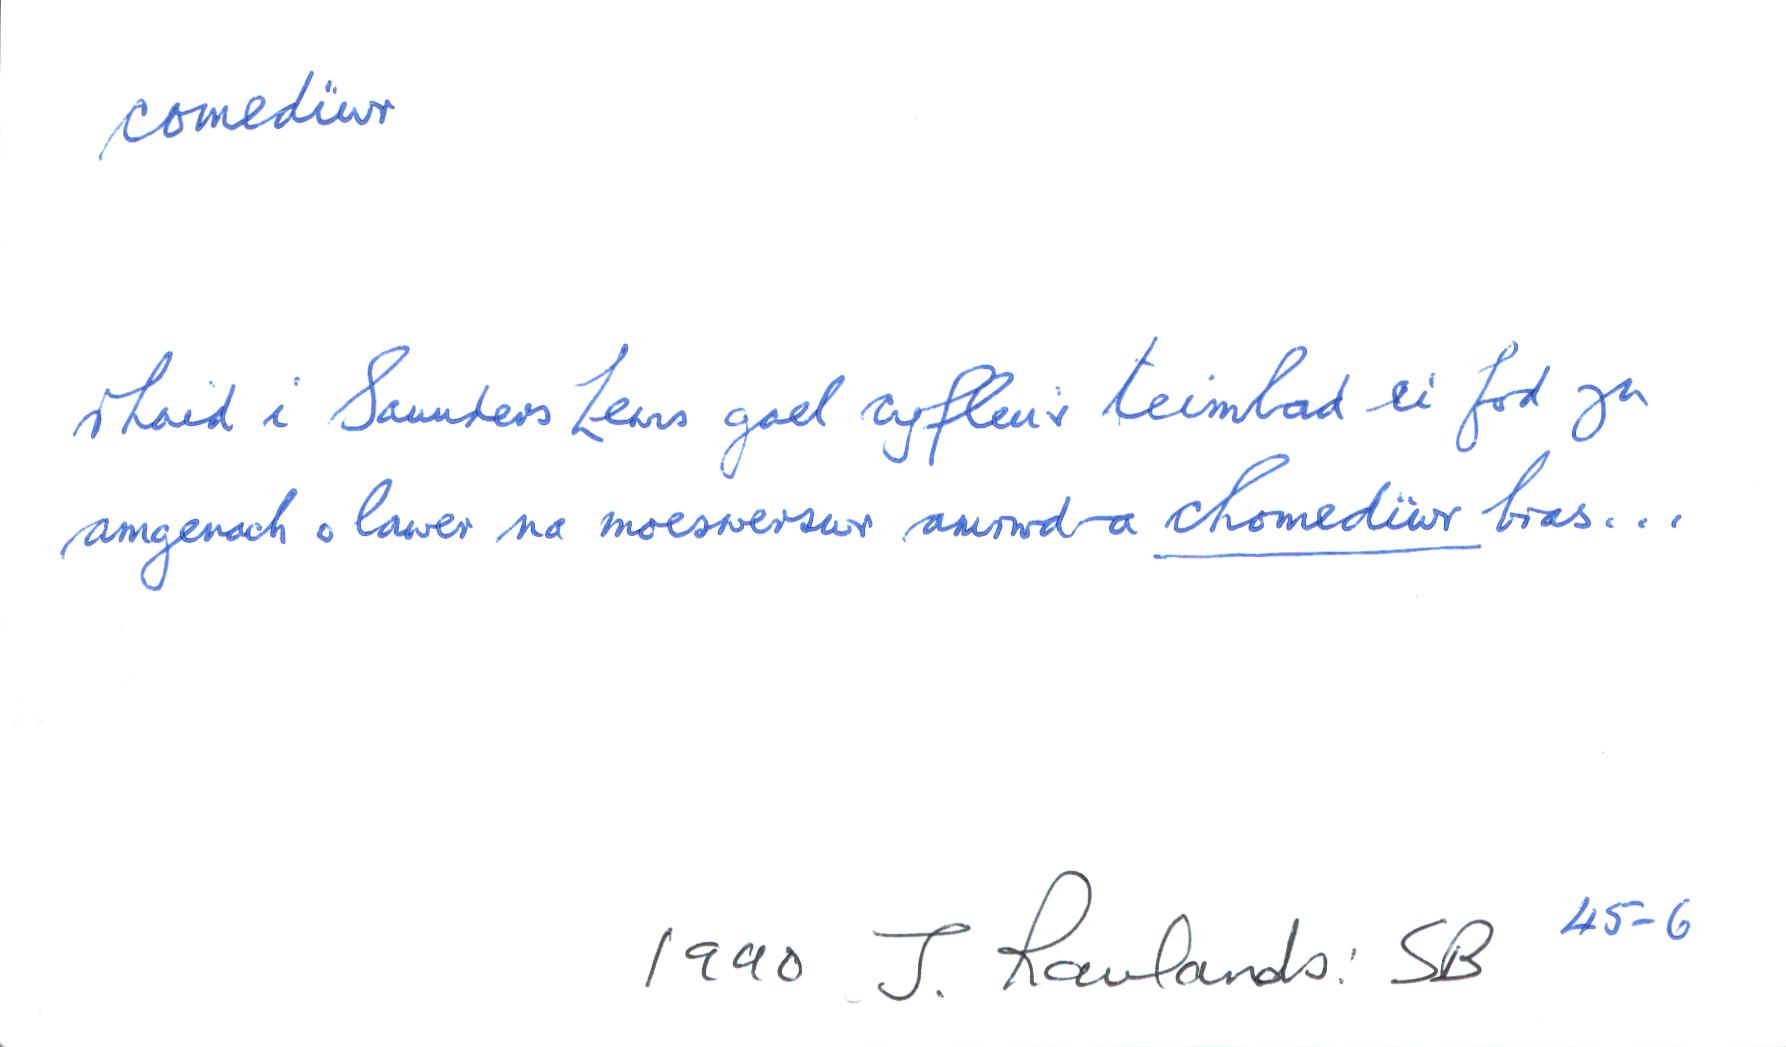 comedïwr
rhaid i Saunders Lewis gael cyfleu'r teimlad ei fod yn
amgenach o lawer na moeswersïwr amrwd a chomedïwr bras...
1990 J. Rowlands: SB 45-6